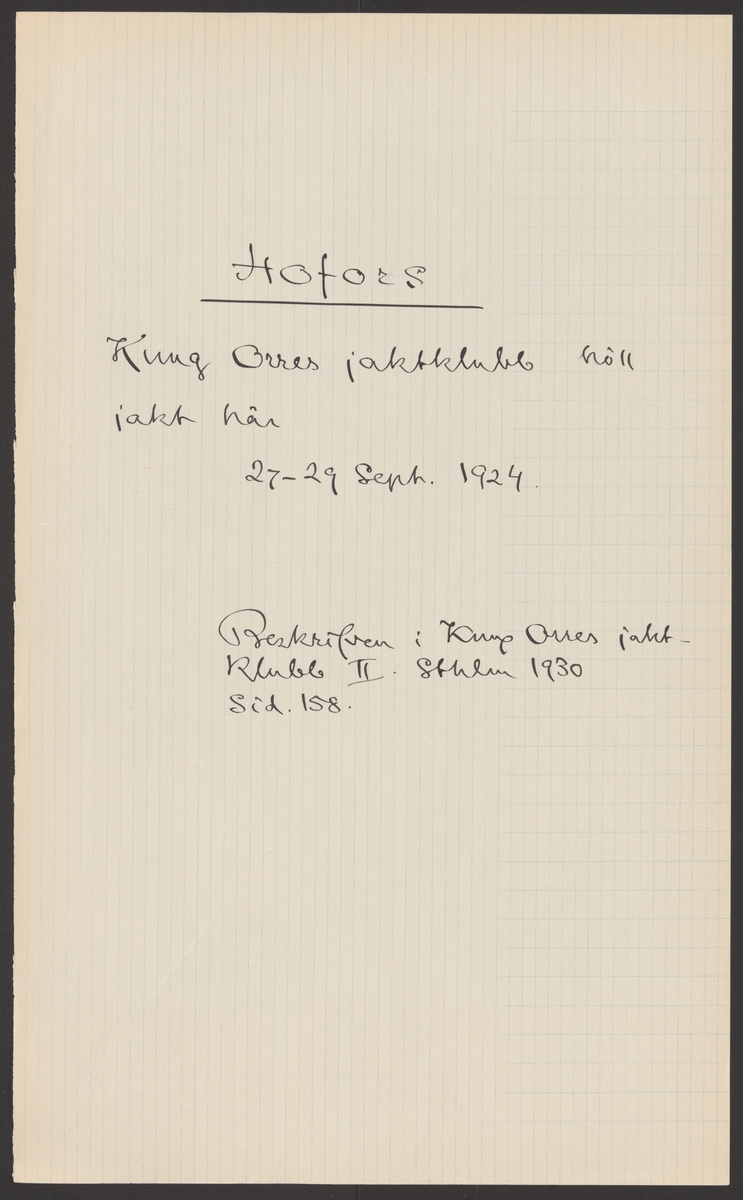 Hofors
Kung Orres jaktklubb höll
jakt här
27-29 Sept. 1924.
Beskrifven i Kung Orres jakt-
klubb II. Sthlm 1930
Sid. 158.